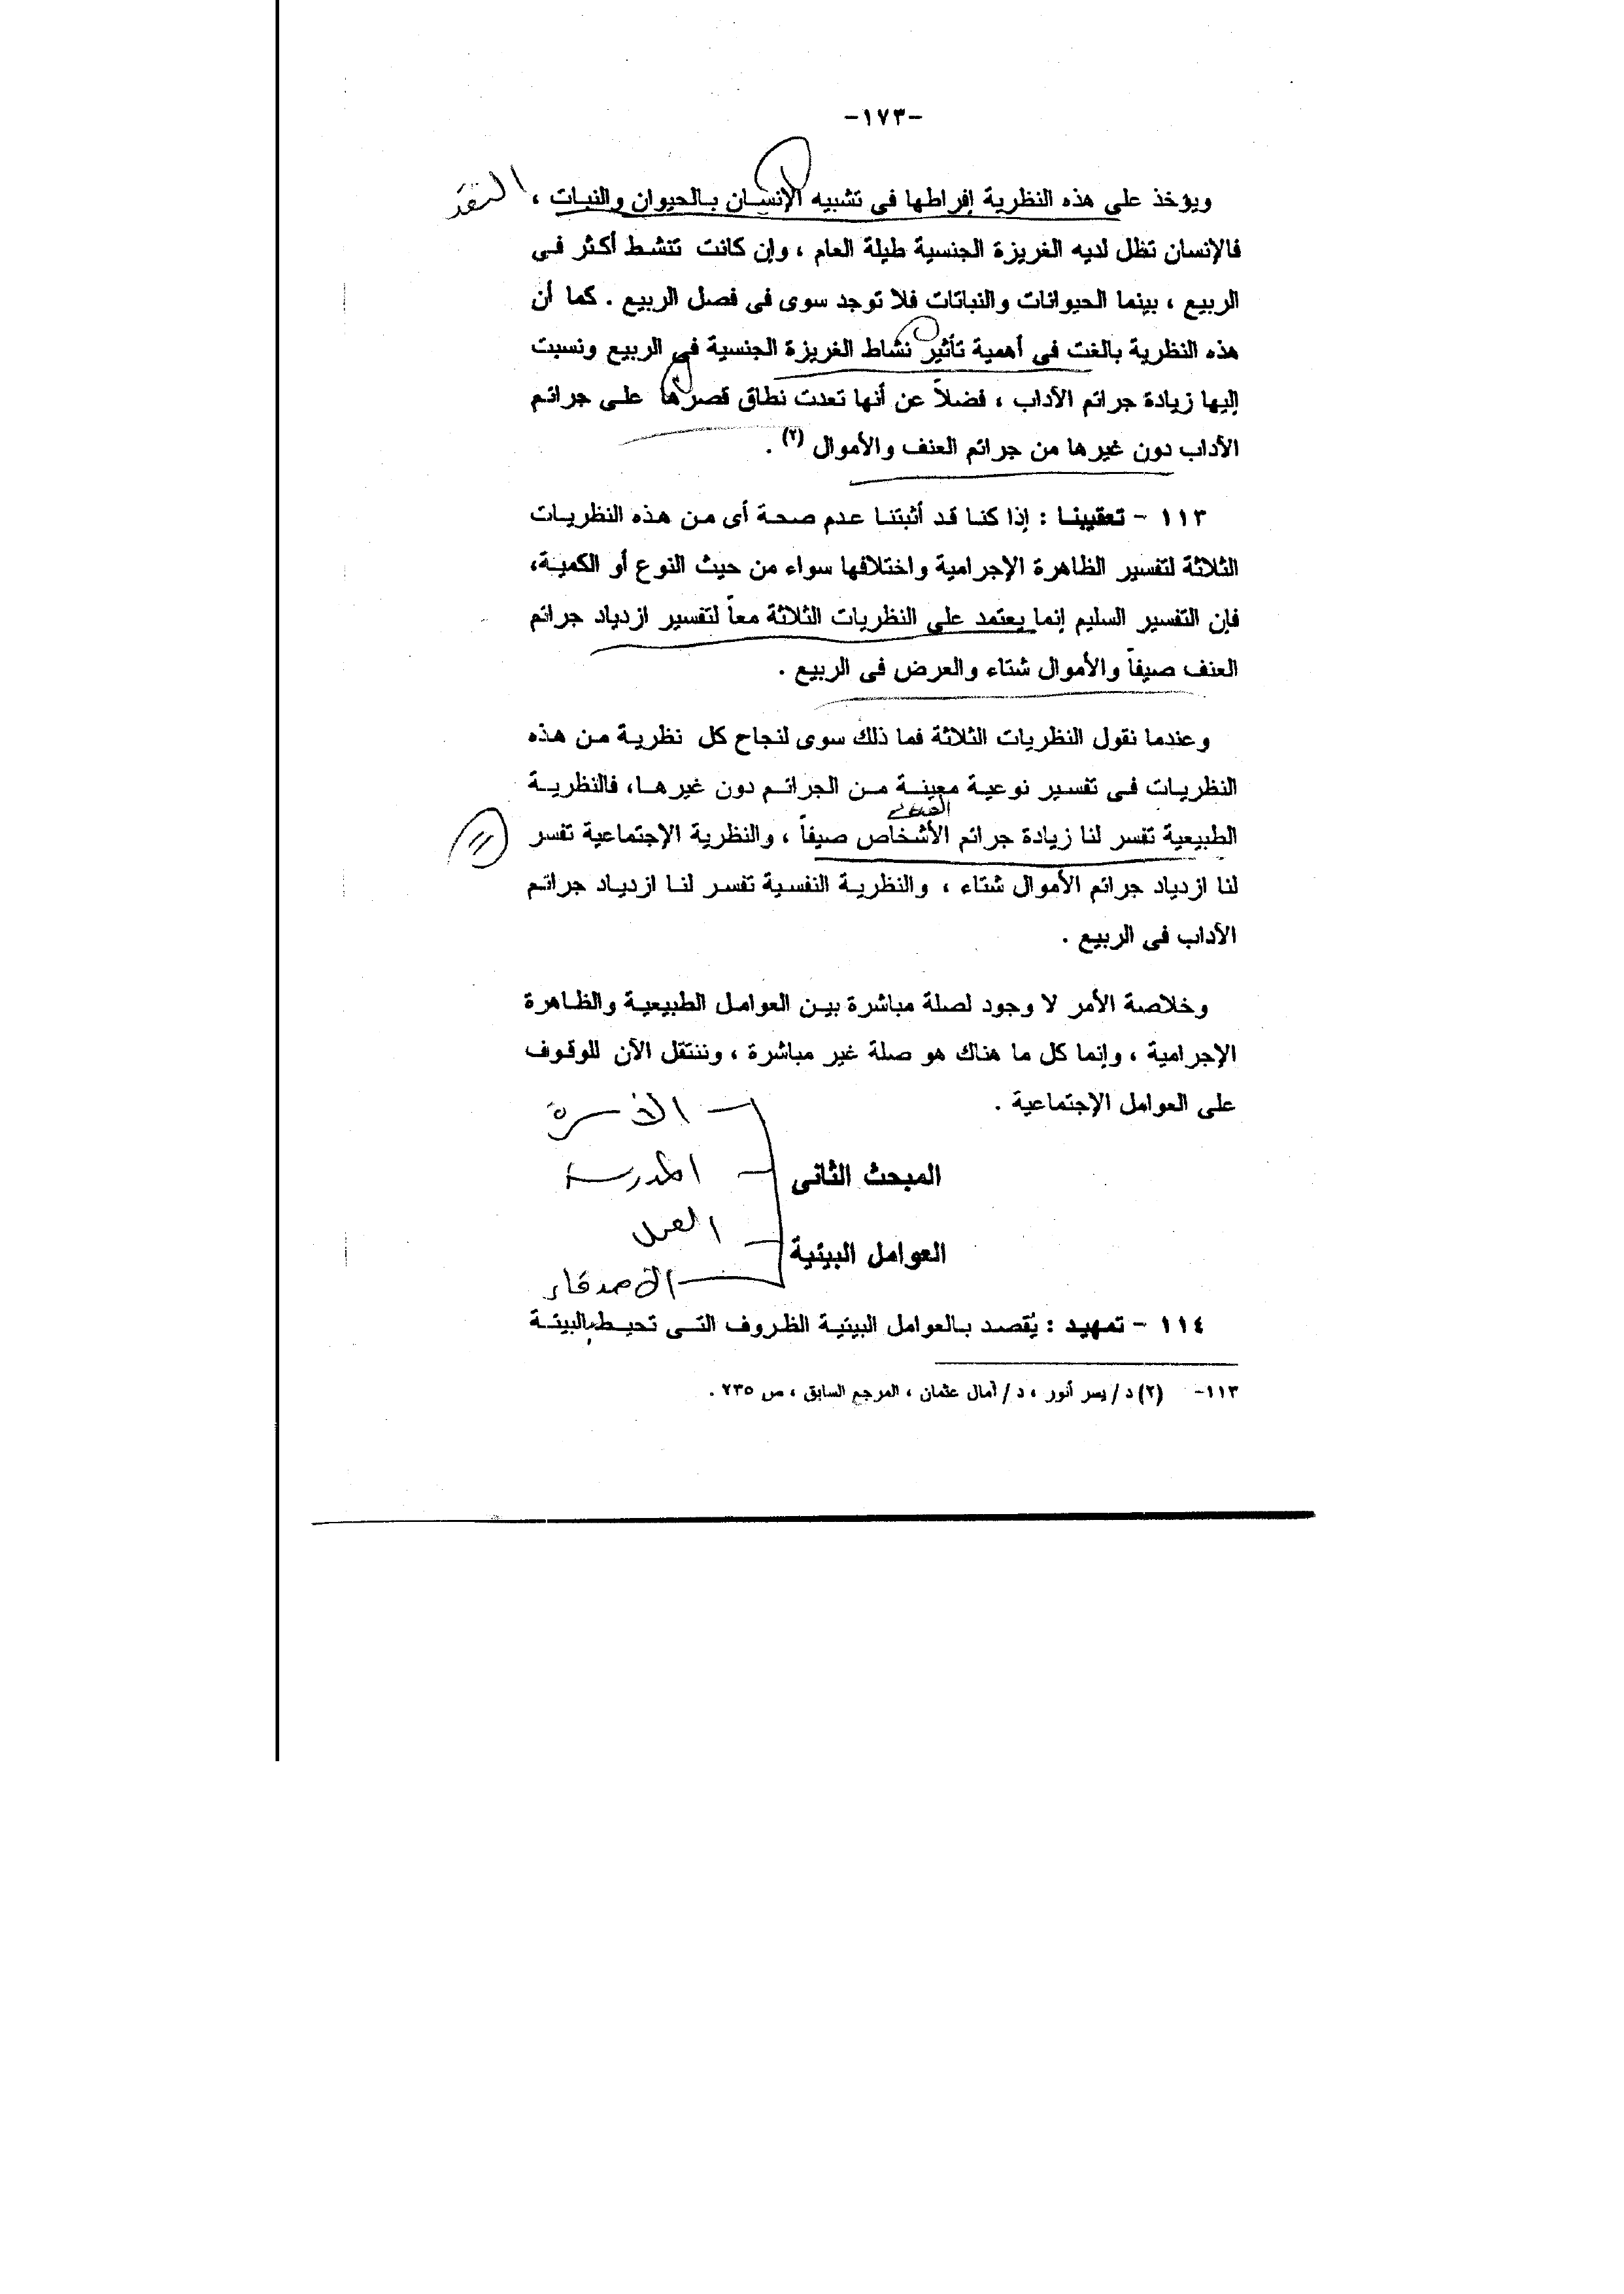 -١٧٣-
ويؤخذ على هذه النظرية إفراطها فى تشبيه الإنسان بالحيوان والنبات ،
النقد
فالإنسان تظل لديه الغريزة الجنسية طيلة العام ، وإن كانت تنشط أكثر فى
الربيع ، بينما الحيوانات والنباتات فلا توجد سوى فى فصل الربيع . كما أن
هذه النظرية بالغت فى أهمية تأثير نشاط الغريزة الجنسية فى الربيع ونسبت
إليها زيادة جرائم الآداب ، فضلاً عن أنها تعدت نطاق قصرها على جرائم
الآداب دون غيرها من جرائم العنف والأموال (٢) .
١١٣ - تعقيبنا : إذا كنا قد أثبتنا عدم صحة أى من هذه النظريات
الثلاثة لتفسير الظاهرة الإجرامية واختلافها سواء من حيث النوع أو الكمية،
فإن التفسير السليم إنما يعتمد على النظريات الثلاثة معاً لتفسير ازدياد جرائم
العنف صيفاً والأموال شتاء والعرض فى الربيع .
وعندما نقول النظريات الثلاثة فما ذلك سوى لنجاح كل نظرية من هذه
النظريات فى تفسير نوعية معينة من الجرائم دون غيرها، فالنظرية
الطبيعية تفسر لنا زيادة جرائم الأشخاص صيفاً ، والنظرية الإجتماعية تفسر
لنا ازدياد جرائم الأموال شتاء ، والنظرية النفسية تفسر لنا ازدياد جرائم
الآداب فى الربيع .
وخلاصة الأمر لا وجود لصلة مباشرة بين العوامل الطبيعية والظاهرة
الإجرامية ، وإنما كل ما هناك هو صلة غير مباشرة ، وننتقل الآن للوقوف
على العوامل الإجتماعية .
الاسرة
المبحث الثانى
المدرسة
العمل
العوامل البيئية
الاصدقاء
١١٤ - تمهيد : يُقصد بالعوامل البيئية الظروف التى تحيط بالبيئة
١١٣- (٢) د/ يسر أنور ، د/ آمال عثمان ، المرجع السابق ، ص ٢٣٥ .